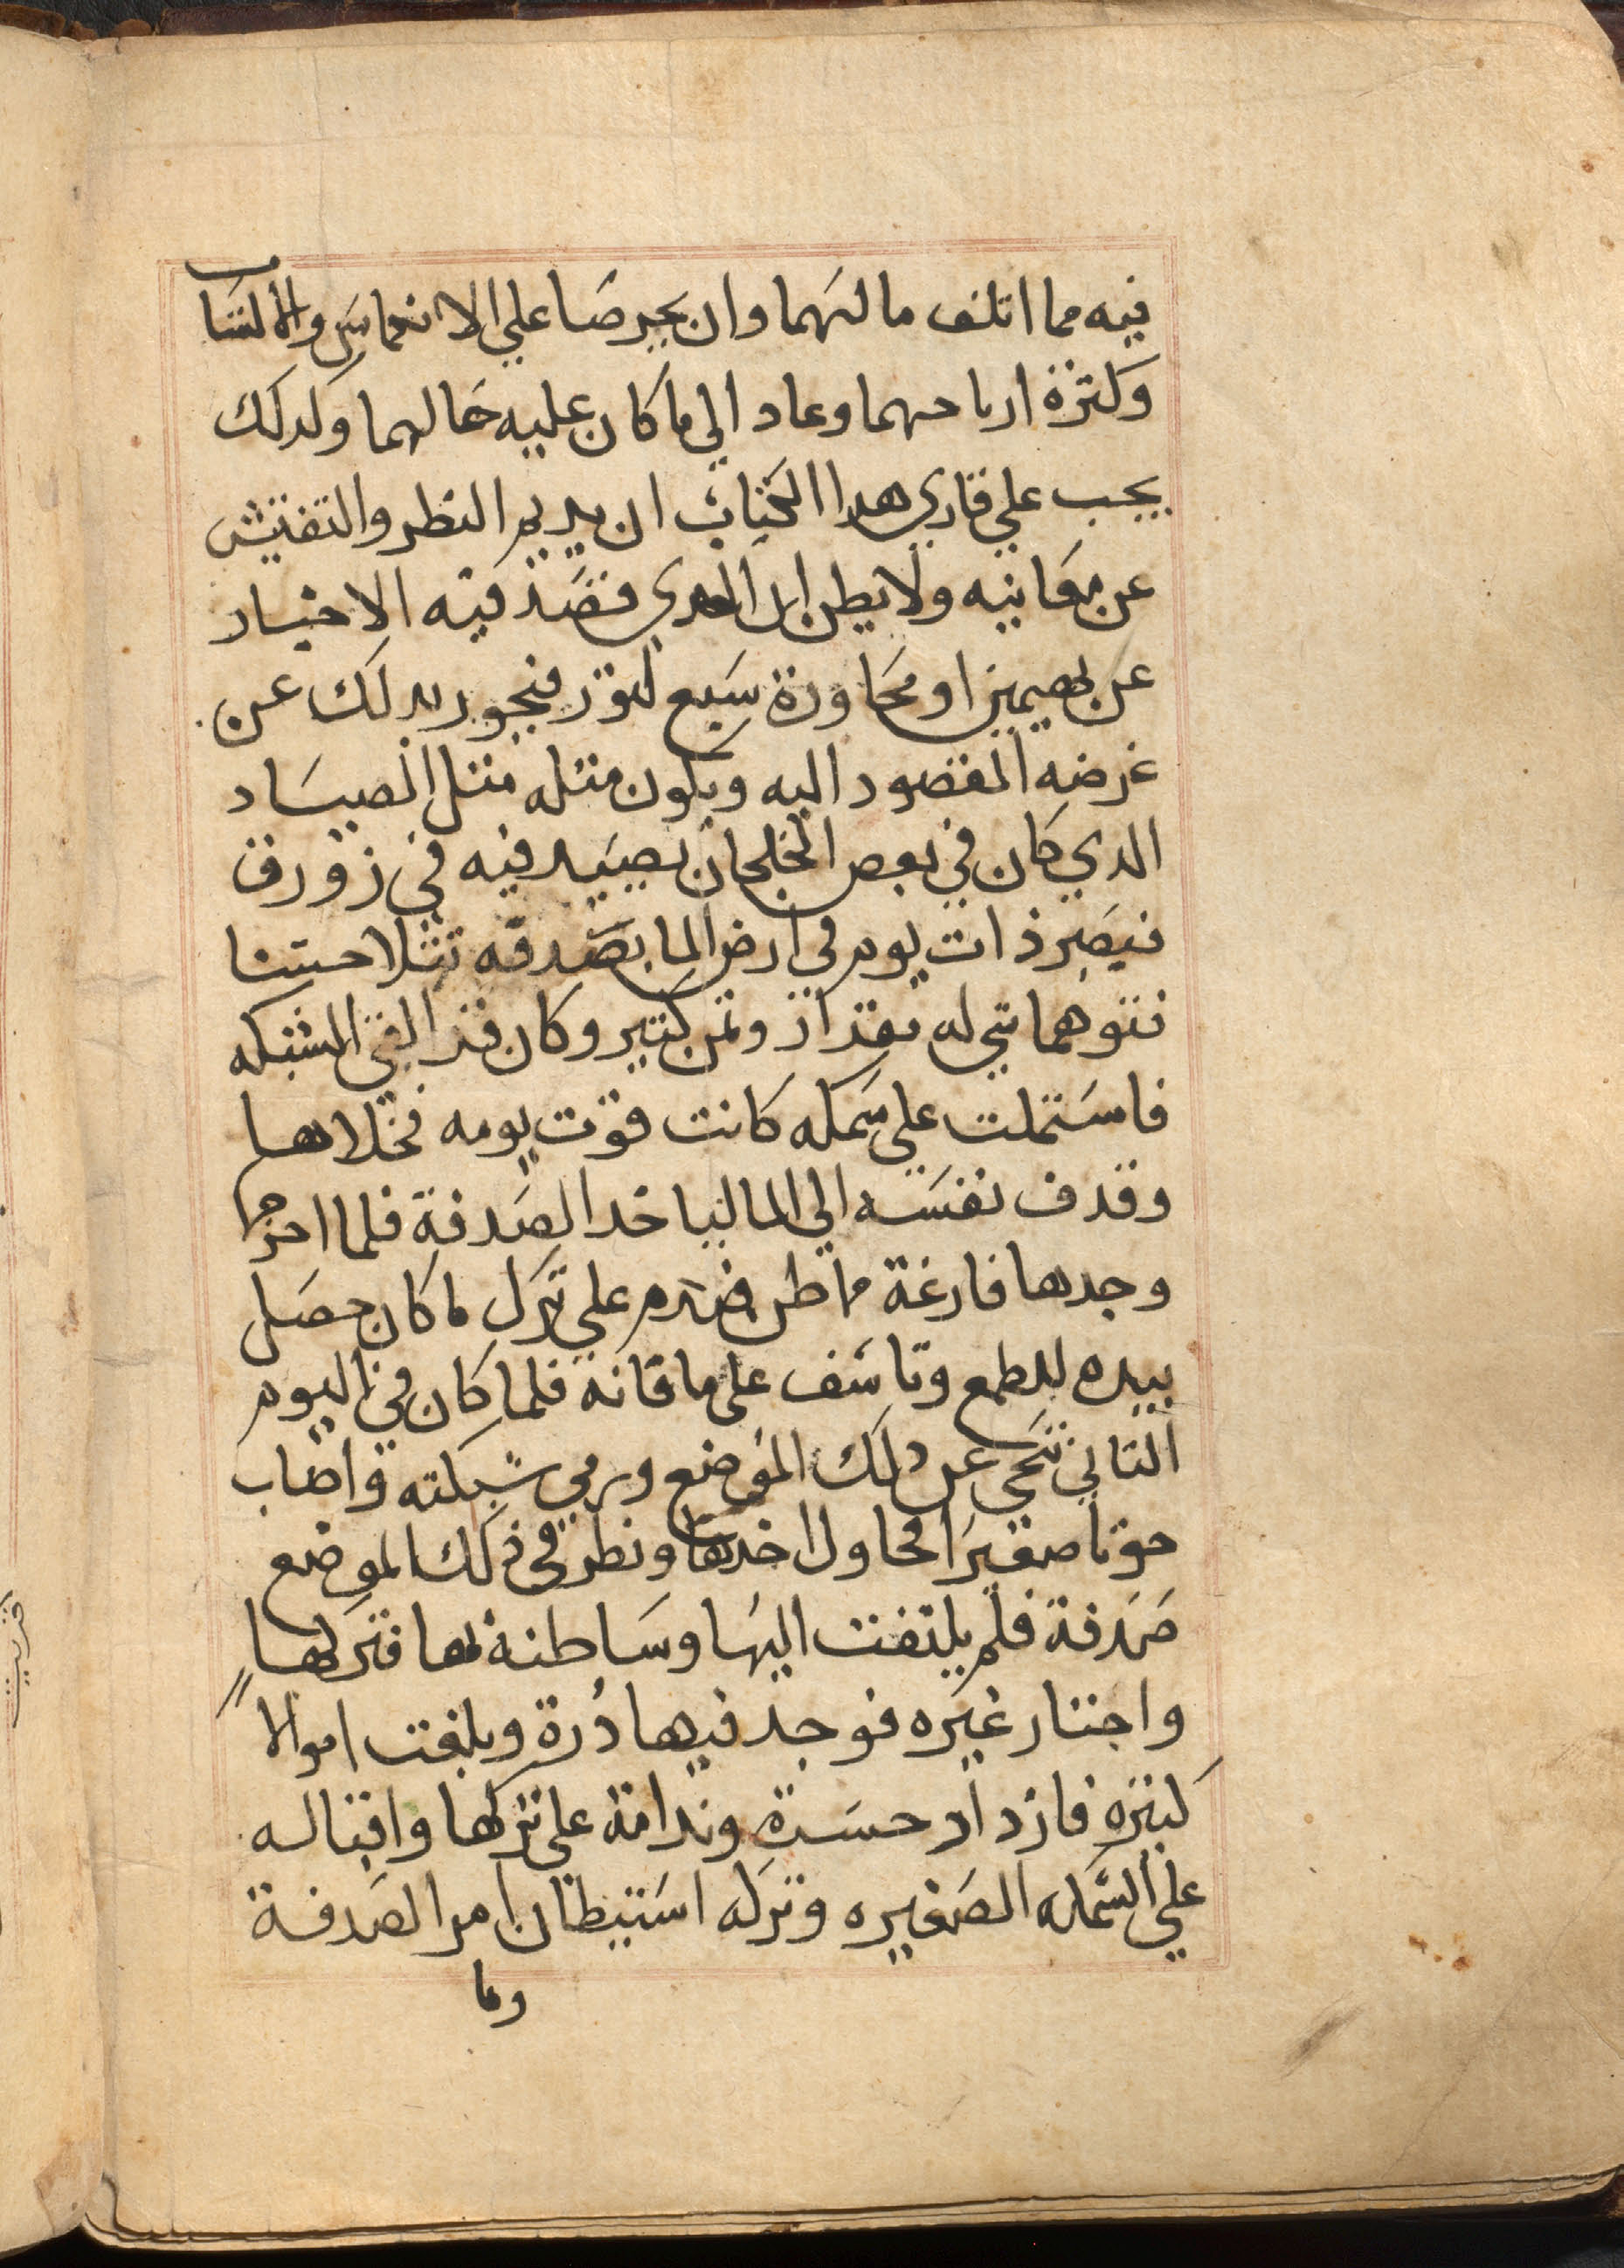 فيه مما اتلف مالهما وان يحرصا علي الانغماس والالتسا
وكثرة ارباحهما وعاد الي ما كان عليه حالهما وكدلك
يجب علي قاري هدا الكتاب ان يديم النظر والتفتيش
عن معانيه ولا يظن ان الدي قصد فيه الاخبار
عن بهيمين او محاورة سبع لثور فيجور بدلك عن
غرضه المقصود اليه ويكون مثله مثل الصياد
الدي كان في بعض الخلجان يصيد فيه في زورق
فبصر ذات يوم في ارض الما بصدفه تتلا حسنا
فتوهما شي له مقدار وثمن كثير وكان قد القي الشبكه
فاشتملت علي سمكه كانت قوت يومه فخلاها
وقدف نفسه الي الما لياخد الصدفة فلما اخرجها
وجدها فارغة مما ظن فندم علي ترك ما كان حصل
بيده للطمع وتاسف على ما فاته فلما كان في اليوم
الثاني تنحي عن دلك الموضع ورمي شبكته واصاب
حوتا صغيرا فحاول اخدها ونظر في ذلك الموضع
صدفة فلم يلتفت اليها وسا ظنه بها فتركها
واجتار غيره فوجد فيها درة وبلغت اموالا
كثيره فازداد حسرة وندامة على تركها واقباله
علي السمكه الصغيره وتركه استبطان امر الصدفة
وما